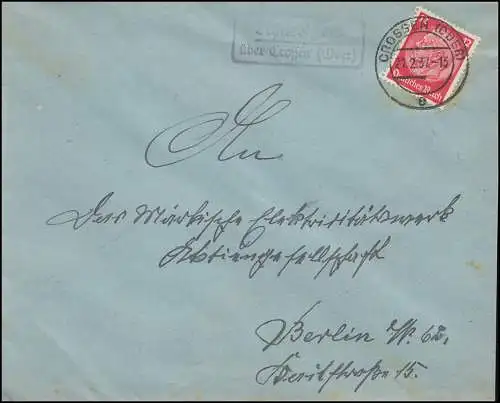 über Crossen (Oder)
CROSSEN (ODER)
21.2.37.-15
a
Deutsches Reich
An
Das Märkische Elektrizitätswerk
Aktiengesellschaft
Berlin W. 62.
15.